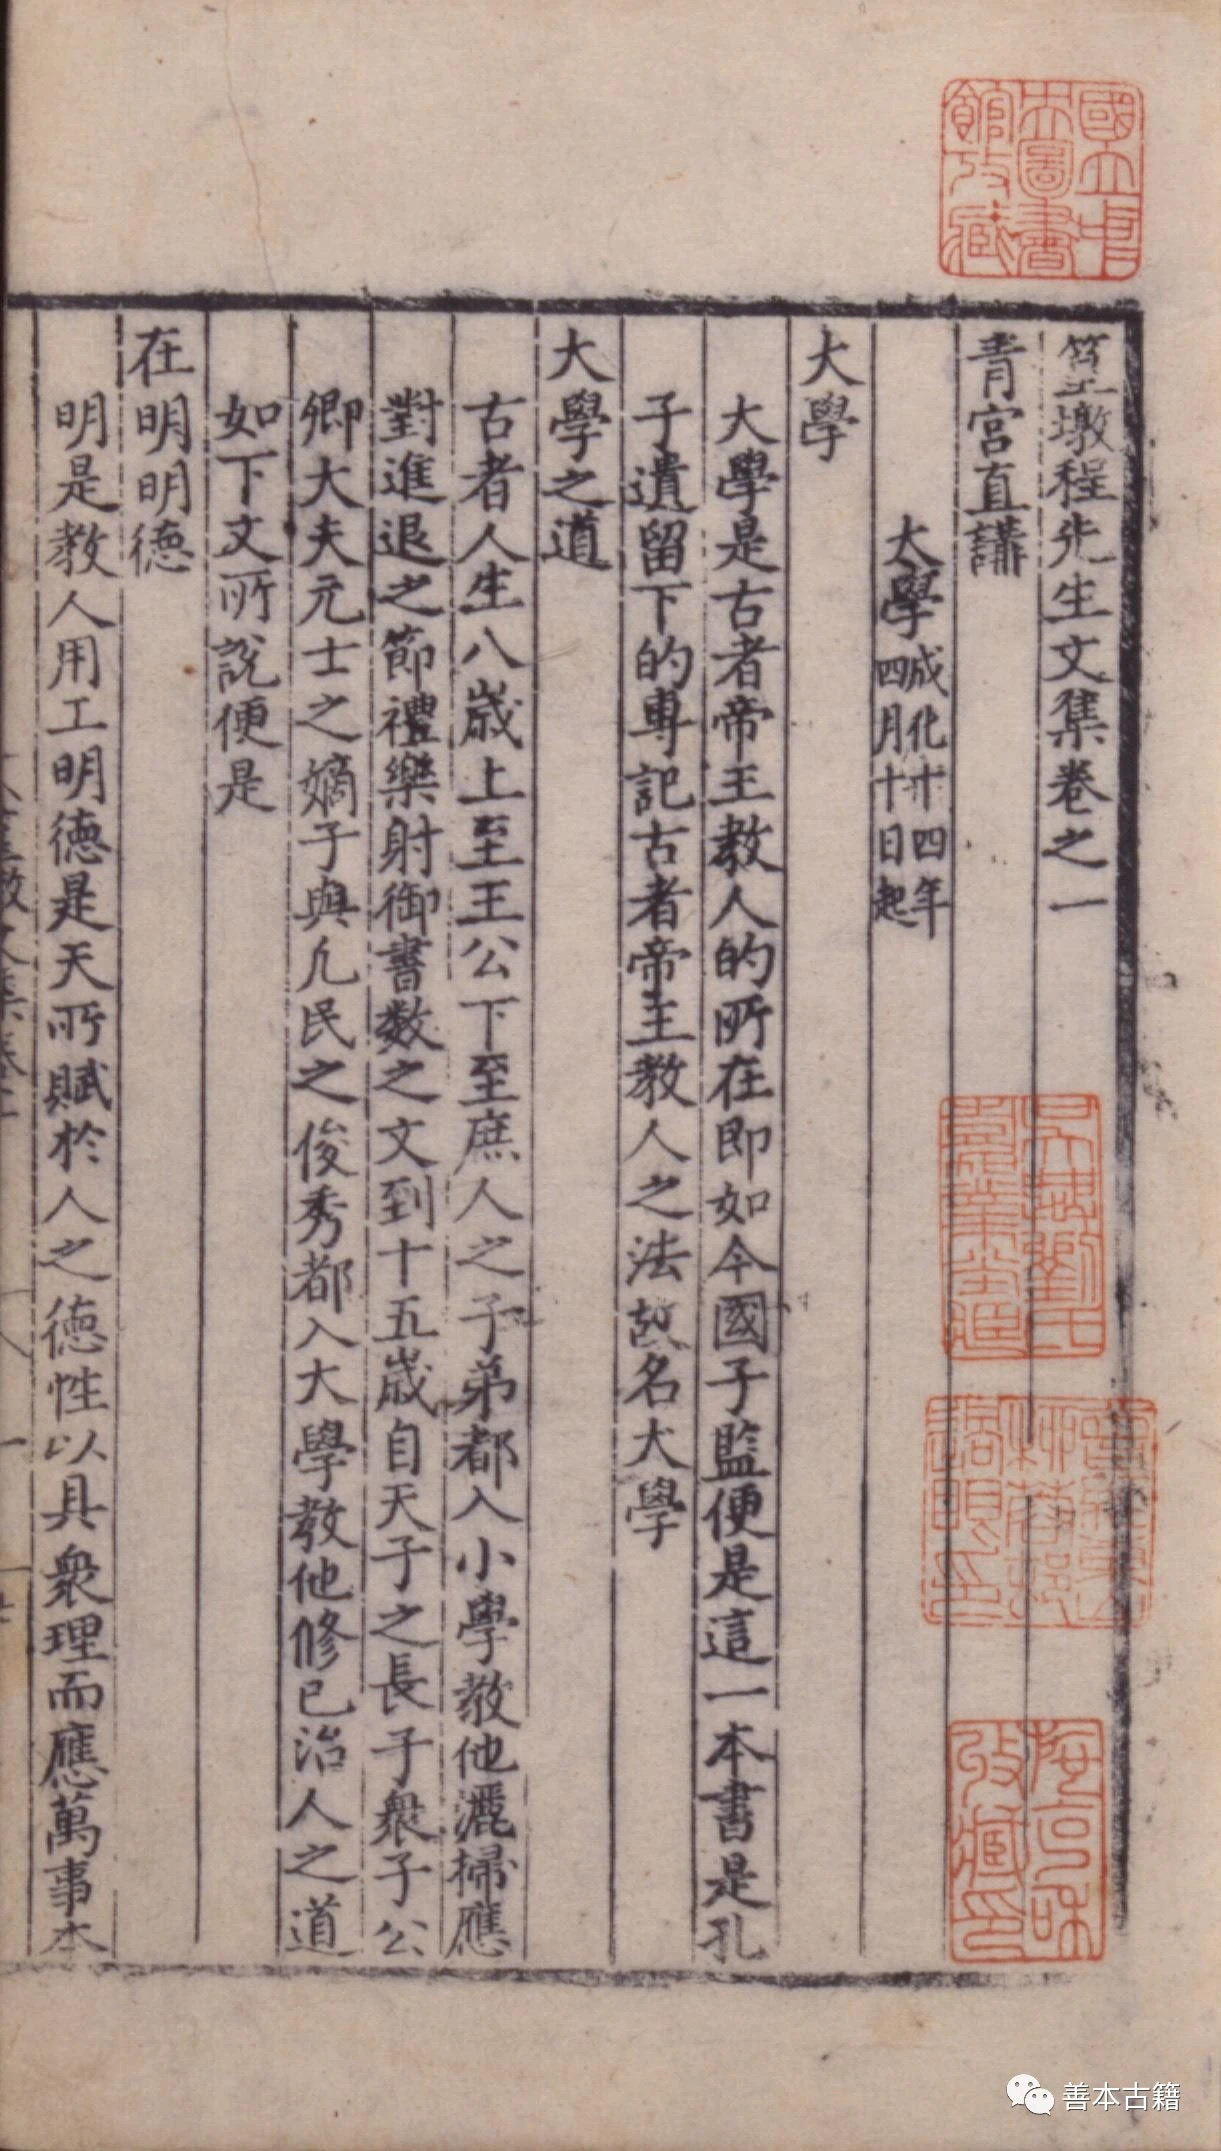 篁墩程先生文集卷之一
青宮直講
大學成化十四年四月十日起
大學
大學是古者帝王教人的所在即如今國子監便是這一本書是孔
子遺留下的專記古者帝王教人之法故名大學
大學之道
古者人生八歲上至王公下至庶人之子弟都入小學教他灑掃應
對進退之節禮樂射御書數之文到十五歲自天子之長子衆子公
卿大夫元士之嫡子與凡民之俊秀都入大學教他修己治人之道
如下文所說便是
在明明德
明是教人用工明德是天所賦於人之德性以具衆理而應萬事本
國立中央圖書館收藏
吳興劉氏嘉業堂藏
善本古籍